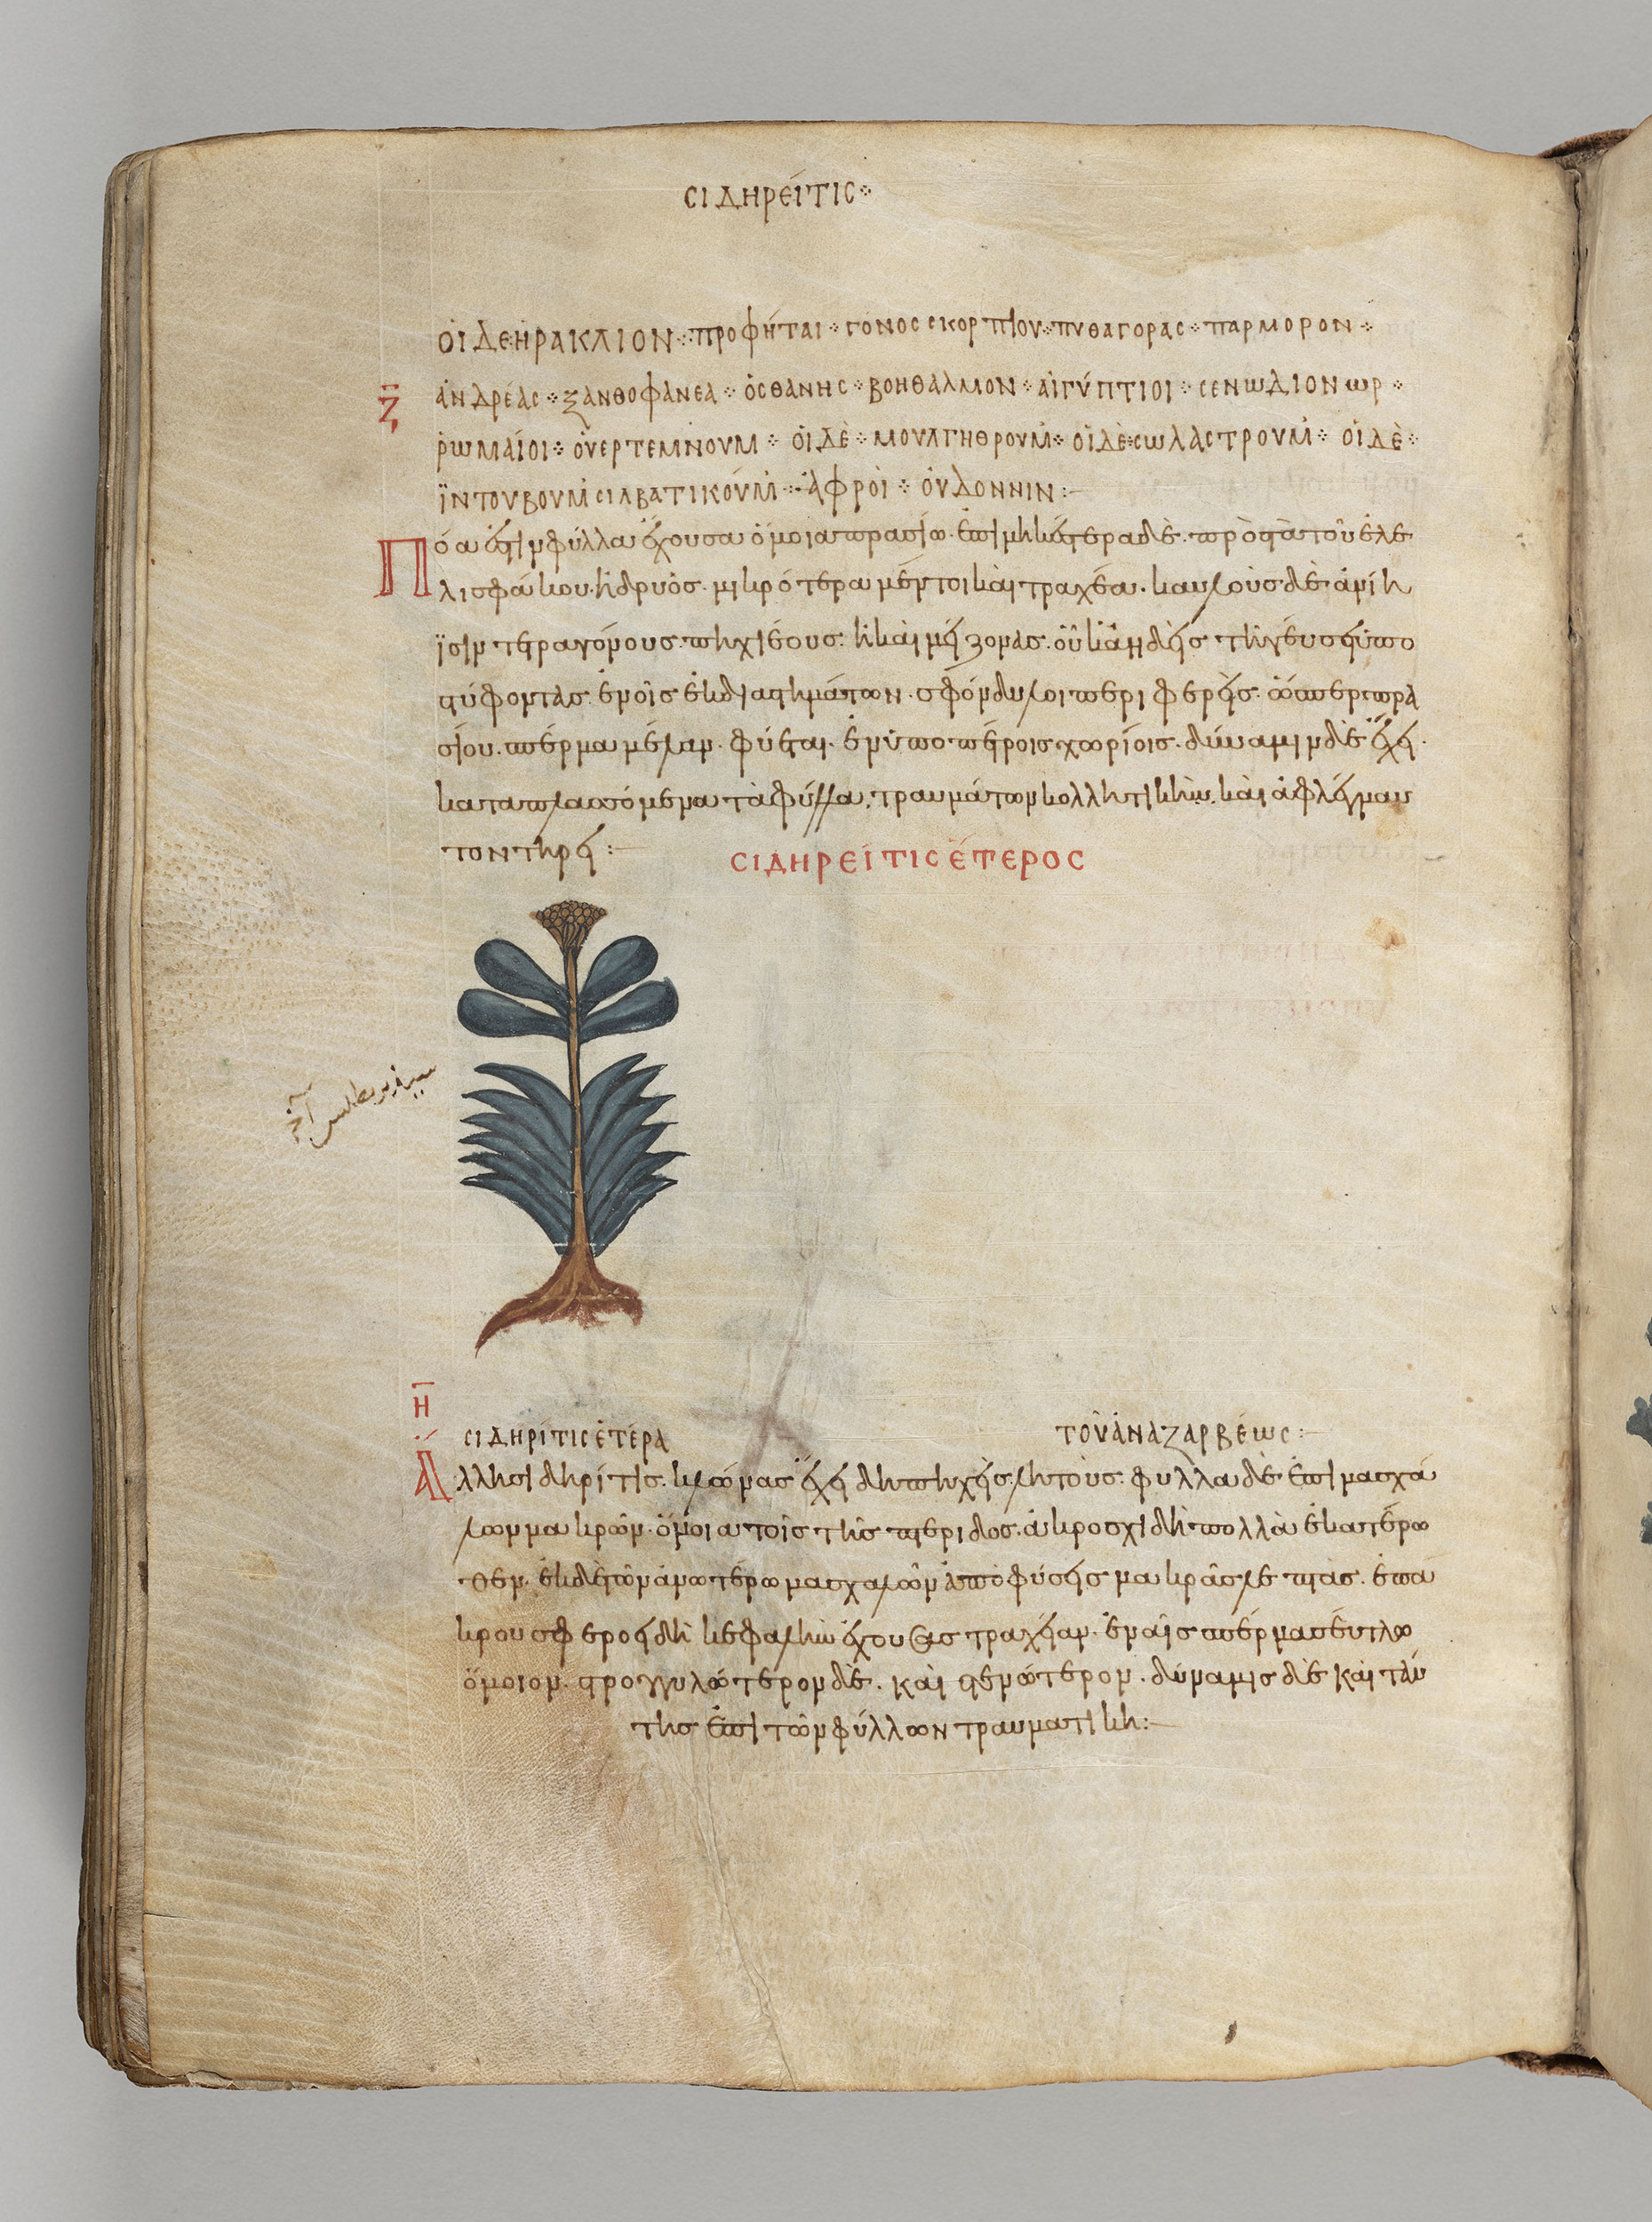 ΣΙΔΗΡΕΊΤΙΣ
ΟἱΔΕ ἩΡΑΚΛΙΟΝ · ΠΡΟΦΗΤΑΙ · ΓΟΝΟΣ ΣΚΟΡΠΙΟΥ · ΠΥΘΑΓΟΡΑΣ · ΠΑΡΜΟΡΟΝ
Ζ
ἈΝΔΡΈΑΣ · ΞΑΝΘΟΦΑΝΕΑ · ὈΣΘΑΝΗΣ · ΒΟΗΘΑΛΜΟΝ · ΑἸΓΎΠΤΙΟΙ · ΣΕΝΩΔΙΟΝΩΡ
ῬΩΜΑΊΟΙ · ὈΥΕΡΤΕΜΝΟΥΜ · ΟἱΔῈ · ΜΟΥΛΓΗΘΡΟΥΜ · ΟἱΔῈ ΣΩΛΑΣΤΡΟΥΜ · ΟἱΔῈ
ΪΝΤΟΥΒΟΥΜ ΣΙΛΒΑΤΙΚΟΎΜ · ἌΦΡΟΙ · ὈΥΔΟΝΝΙΝ :-
Πόα ἐστὶν φύλλα ἔχουσα ὅμοια πρασίω· ἐπιμηκέστερα δὲ· πρὸς τὰ τοῦ ἐλε
λισφάκου· ἢ δρυός· μικρότερα μέντοι καὶ τραχέα· καυλοὺς δὲ ἀνίη
ϊσιν τετραγόνους· πηχιέους· ἢ καὶ μείζονας· οὐκ ἀηδεῖς τῇ γεύσει ὑπο
στύφοντας· ἐν οἷς ἐκ διαστημάτων· σφόνδυλοι περιφερεῖς· ὥσπερ πρα
σίου· σπέρμα μέλαν· φύεται· ἐν ὑποπέτροις χωρίοις· δύναμιν δὲ ἔχει·
καταπλασσόμενα τὰ φύλλα· τραυμάτων κολλητικὴν· καὶ ἀφλέγμαν
τον τηρεῖ :-
ΣΙΔΗΡΕΊΤΙΣ ἝΤΕΡΟΣ
Η
ΣΙΔΗΡΊΤΙΣ ἙΤΈΡΑ
ΤΟΥ͂ ἈΝΑΖΑΡΒΈΩΣ :-
Ἄλλη σιδηρίτις· κλῶνας ἔχει διπήχεις λητούς· φύλλα δὲ ἐπὶ μασχα
λῶν μακρῶν· ὅμοια τοῖς τῆς πτέριδος· ἀκροσχιδῆ πολλὰ ἑκατέρω
θεν· ἐκ δὲ τῶν ἀνωτέρω μασχαλῶν ἀποφύσεις μακρὰς λεπτὰς· ἐπ ἀ
κρου σφεροειδῆ κεφαλὴν ἐχούσας τραχεῖαν· ἐν αἷς σπέρμα σεύτλω
ὅμοιον· στρογγυλώτερον δὲ· καὶ στενώτερον· δύναμις δὲ καὶ ταύ
της ἐπὶ τῶν φύλλων τραυματική :-